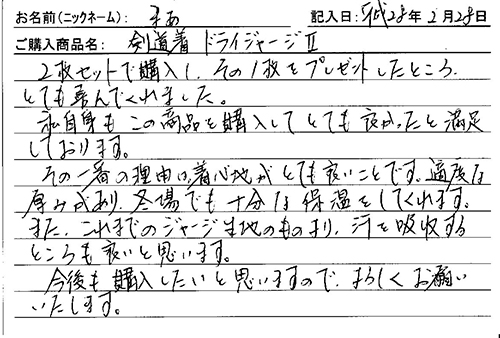 お名前(ニックネーム): まあ 記入日: 平成28年2月28日
ご購入商品名: 剣道着 ドライジャージⅡ
2枚セットで購入し、その1枚をプレゼントしたところ、
とても喜んでくれました。
私自身もこの商品を購入してとても良かったと満足
しております。
その一番の理由は着心地がとても良いことです。適度な
厚みがあり、冬場でも十分な保温をしてくれます。
また、これまでのジャージ生地のものより、汗を吸収する
ところも良いと思います。
今後も購入したいと思いますので、よろしくお願い
いたします。